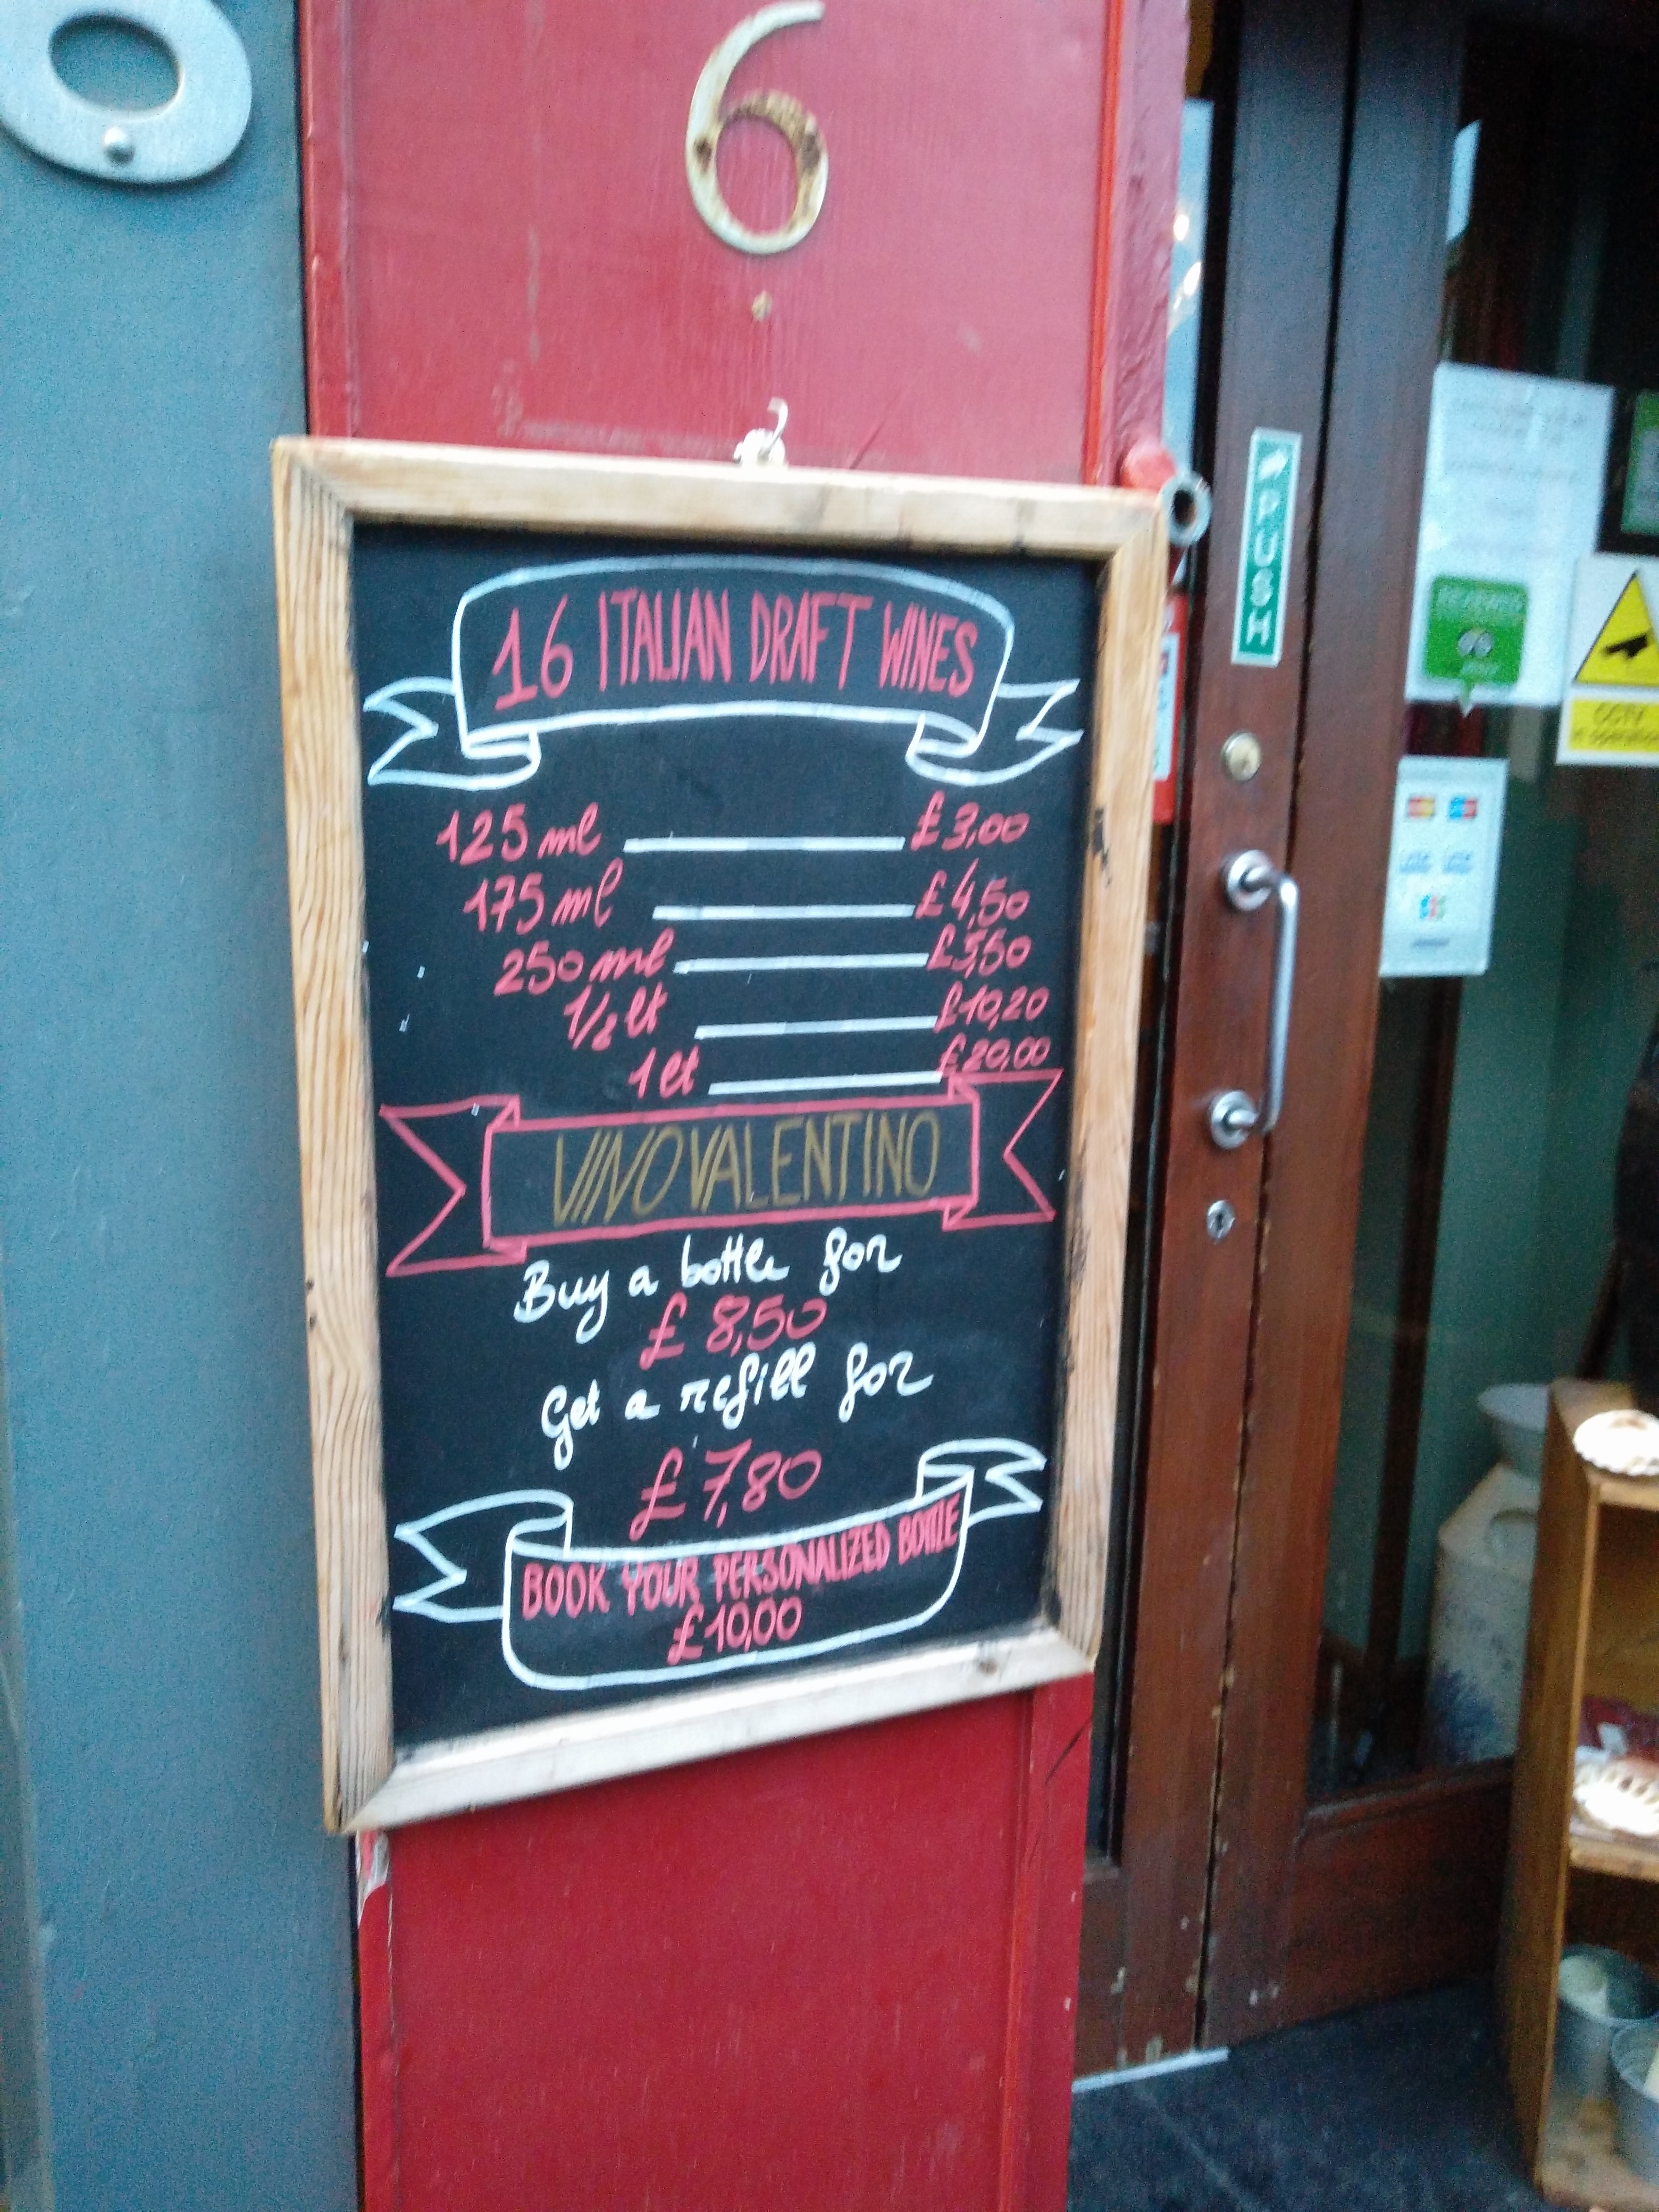 6
16 ITALIAN DRAFT WINES
125 ml £3,00
175 ml £4,50
250 ml £5,50
1/2 lt £10,20
1 lt £20,00
VINOVALENTINO
Buy a bottle for
£ 8,50
Get a refill for
£ 7,80
BOOK YOUR PERSONALIZED BOTTLE
£10,00
PUSH
CCTV
in operation